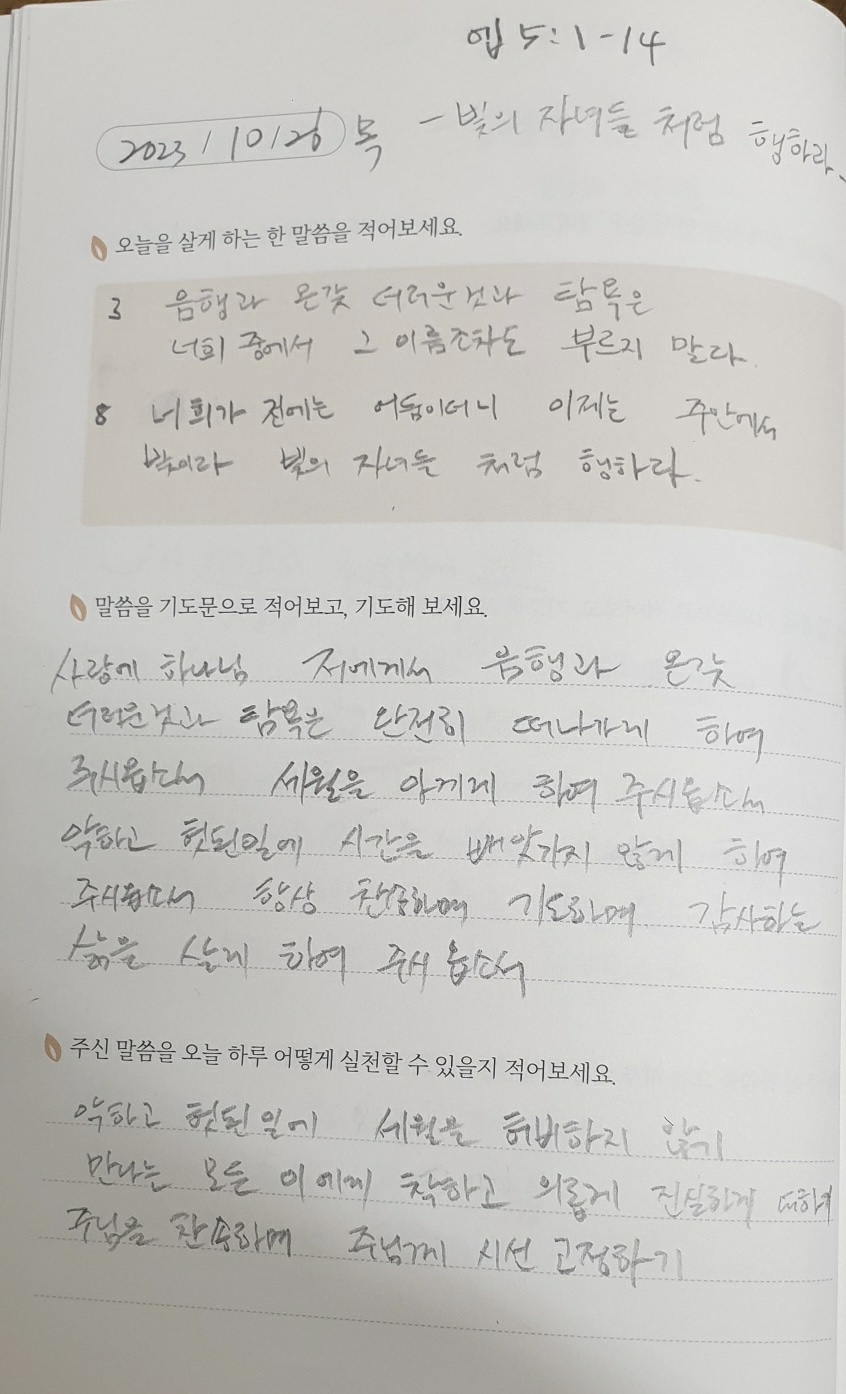 엡 5:1-14
2023/10/26 목 - 빛의 자녀들 처럼 행하라.
오늘을 살게 하는 한 말씀을 적어보세요.
3 음행과 온갖 더러운것과 탐욕은
너희 중에서 그 이름조차도 부르지 말라.
8 너희가 전에는 어둠이더니 이제는 주안에서
빛이라 빛의 자녀들 처럼 행하라.
말씀을 기도문으로 적어보고, 기도해 보세요.
사랑에 하나님 저에게서 음행과 온갖
더러운것과 탐욕은 완전히 떠나가게 하여
주시옵소서 세월을 아끼게 하여 주시옵소서
악하고 헛된일에 시간을 빼앗기지 않게 하여
주시옵소서 항상 찬송하며 기도하며 감사하는
삶을 살게 하여 주시옵소서
주신 말씀을 오늘 하루 어떻게 실천할 수 있을지 적어보세요.
악하고 헛된일에 세월을 허비하지 않기
만나는 모든 이에게 착하고 의롭게 진실하게 대하며
주님을 찬송하며 주님께 시선 고정하기